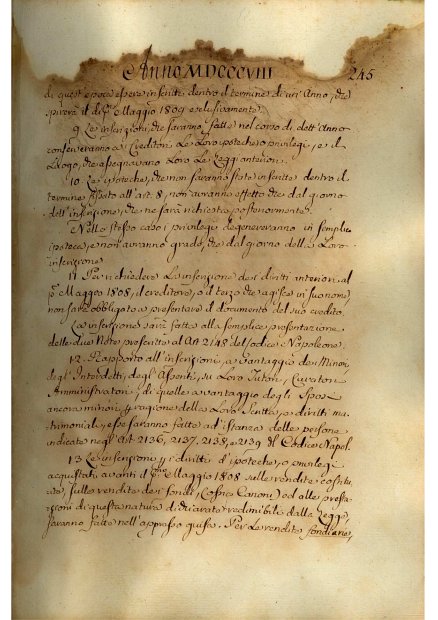 Anno MDCCCVIII 245
di quest'epoca essere inscritte dentro il termine di un'Anno, che
spirerà il dì p.mo Maggio 1809 esclusivamente.
9. Le inscrizioni, che saranno fatte nel corso di dett'Anno
conserveranno a' Creditori le loro ipoteche, o privilegi, e il
Luogo, che assegnavano loro le Leggi anteriori.
10. Le ipoteche, che non saranno state inscritte dentro il
termine fissato all'art. 8, non avranno effetto che dal giorno
dell'inscrizione, che ne sarà richiesta posteriormente.
Nello stesso caso i privilegi degenereranno in semplice
ipoteca, e non avranno grado, che dal giorno della Loro
inscrizione
11. Per richiedere l'inscrizione dei diritti anteriori al
p.mo Maggio 1808, il creditore, o il terzo che agisce in suo nome
non sarà obbligato a presentare il documento del suo credito.
La inscrizione sarà fatta alla semplice presentazione
delle due Note prescritte al Art 2148 del Codice Napoleone.
12. Rapporto all'inscrizioni, a vantaggio dei Minori
degl'Interdetti, degl'Assenti, su Loro Tutori, Curatori
Amministratori, di quelle a vantaggio degli Sposi
ancora minori, p ragione della Loro Scritta, e diritti ma-
trimoniali, esse saranno fatte ad istanza delle persone
indicate negl'Art. 2136, 2137, 2138, e 2139 del Codice Napol.
13. Le inscrizione p i diritti d'ipoteche, o privilegi
acquistati avanti il p.mo Maggio 1808 sulle rendite costitu-
ite, sulle rendite dei fondi, (ossia Canoni) ed alle presta-
zioni di questa natura dichiarate redimibili dalla Legge
saranno fatte nell'appresso guisa. Per le rendite fondiarie,